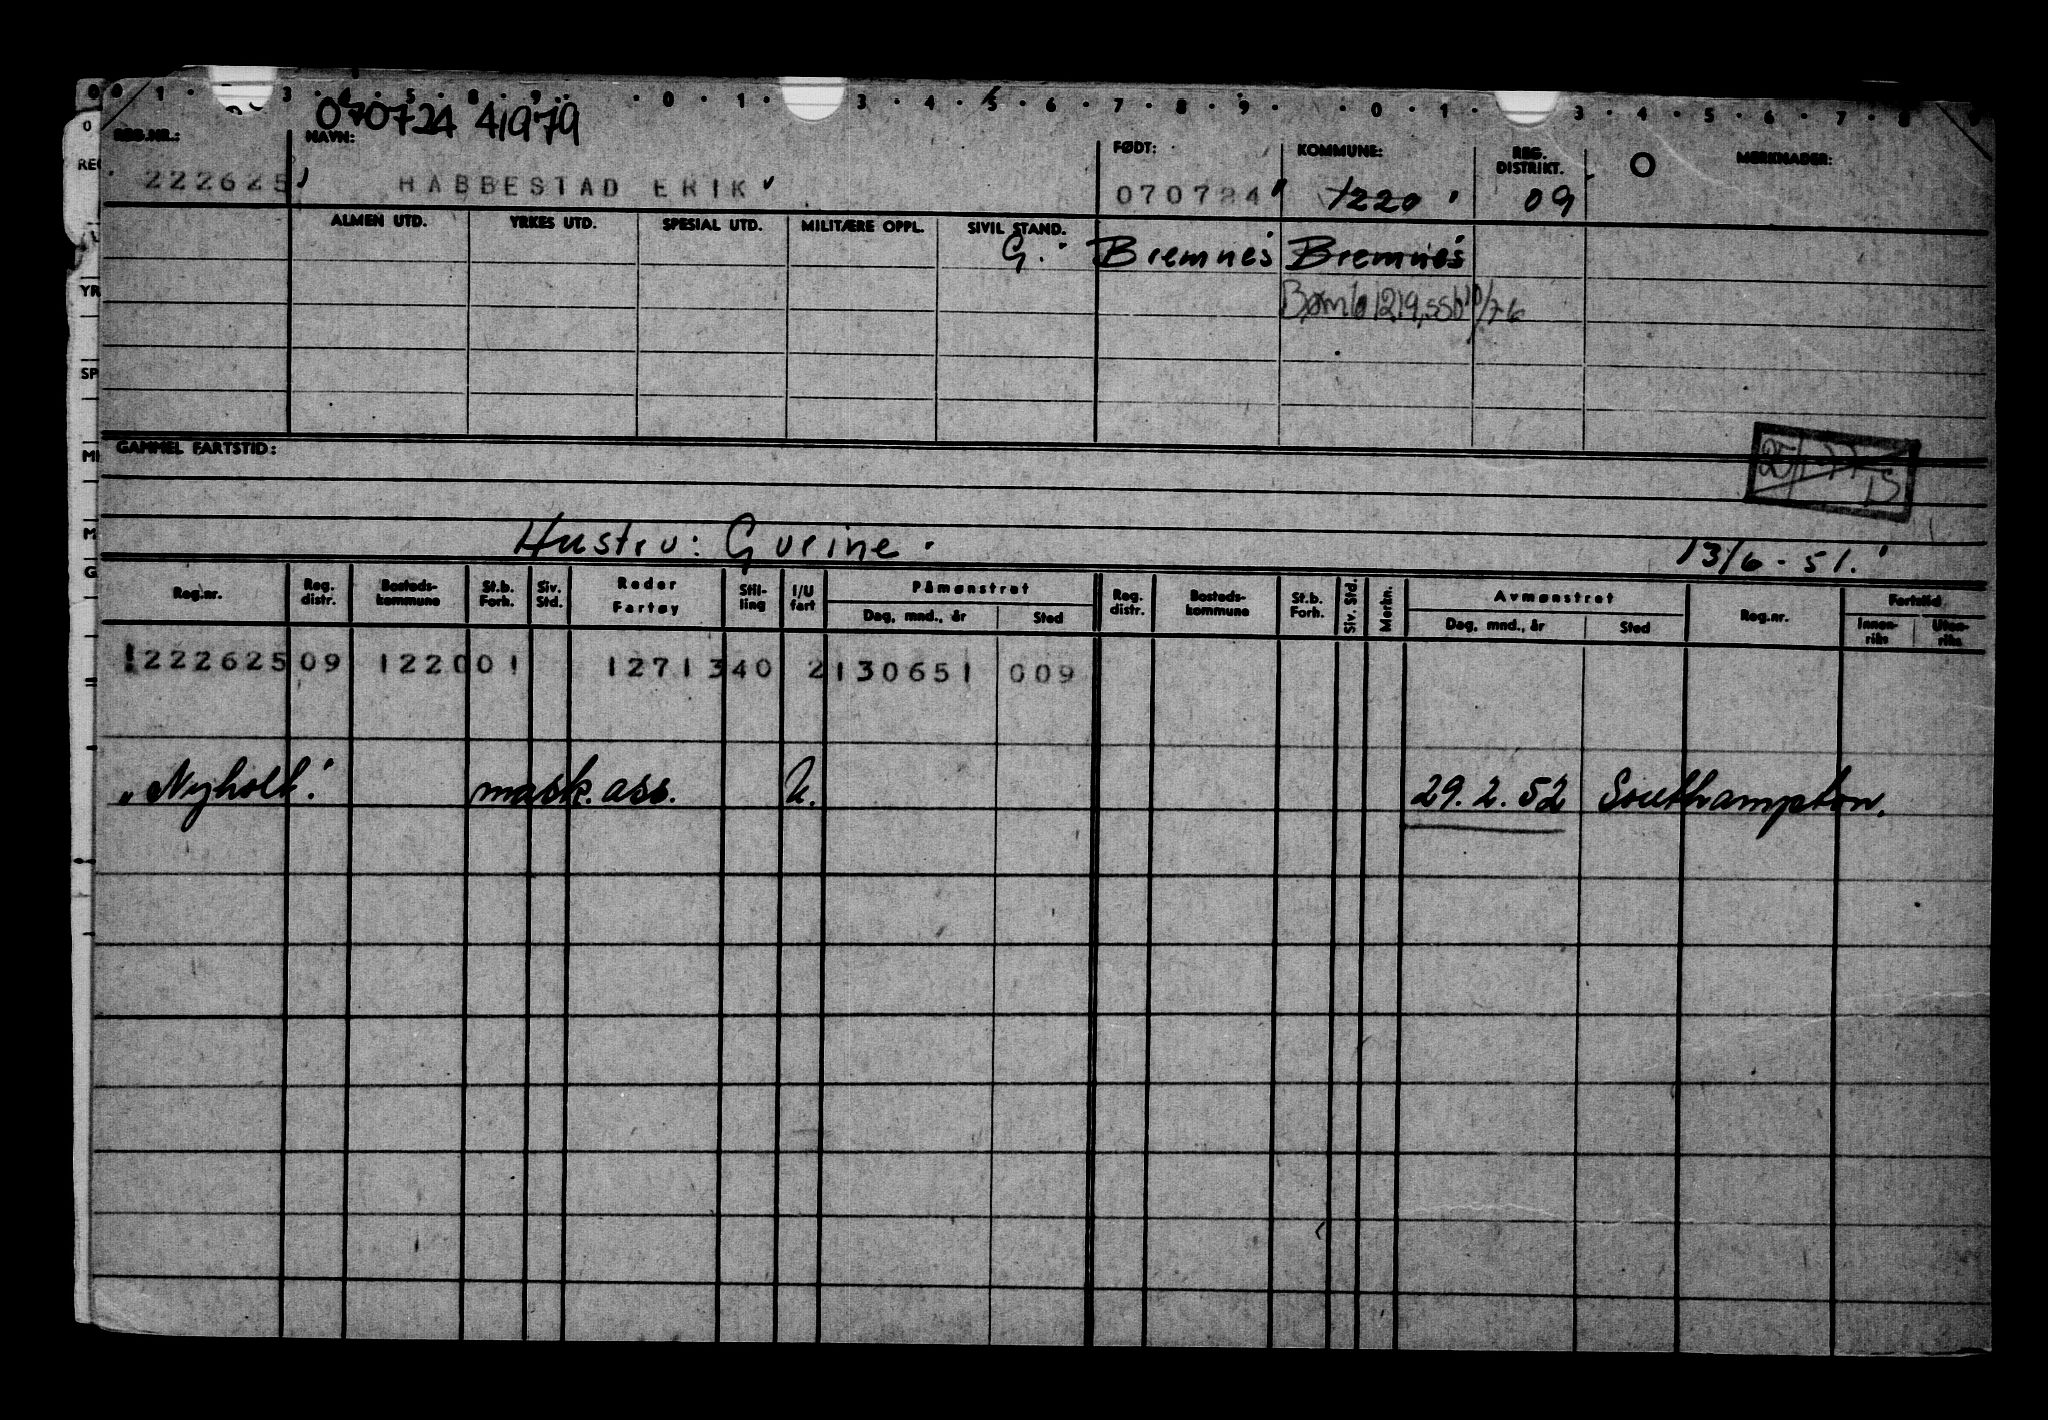 070724 41979
REG.NR.: NAVN: FØDT: KOMMUNE: REG. DISTRIKT. MERKNADER:
222625 HABBESTAD ERIK 070724 1220 09
ALMEN UTD. YRKES UTD. SPESIAL UTD. MILITÆRE OPPL. SIVIL STAND.
G. Bremnes Bremnes
Bømlo 1219,
GAMMEL FARTSTID:
Hustru: Gurine. 13/6-51.
Reg.nr. Reg. distr. Bosteds-kommune St.b. Forh. Siv. Std. Reder Fartøy Stil-ling I/U fart Påmønstret Dag, mnd., år Sted Reg. distr. Bosteds-kommune St.b. Forh. Siv. Std. Merkn. Avmønstret Dag, mnd., år Sted Reg.nr. Fartstid Innen-riks Uten-riks
222625 09 1220 01 1271340 2 130651 009
"Nyholt". mask. ass. U. 29.2.52 Southampton.